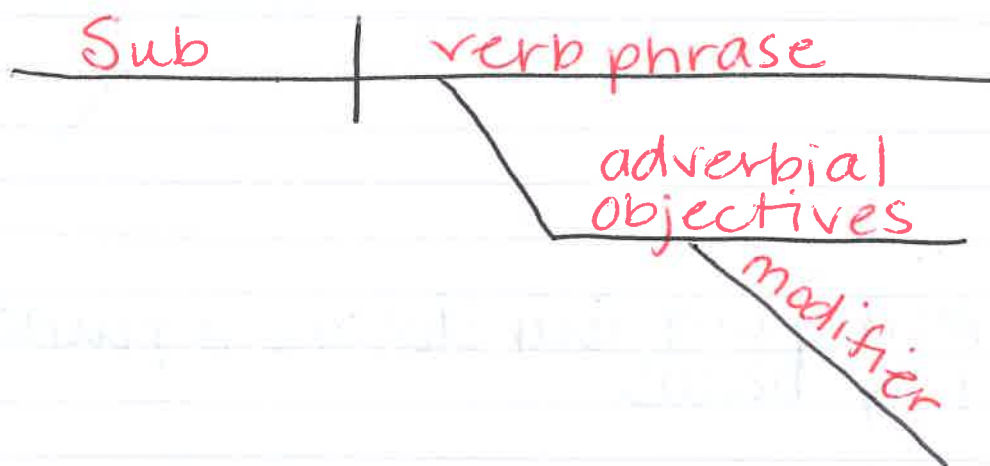 Sub verb phrase
adverbial
objectives
modifier